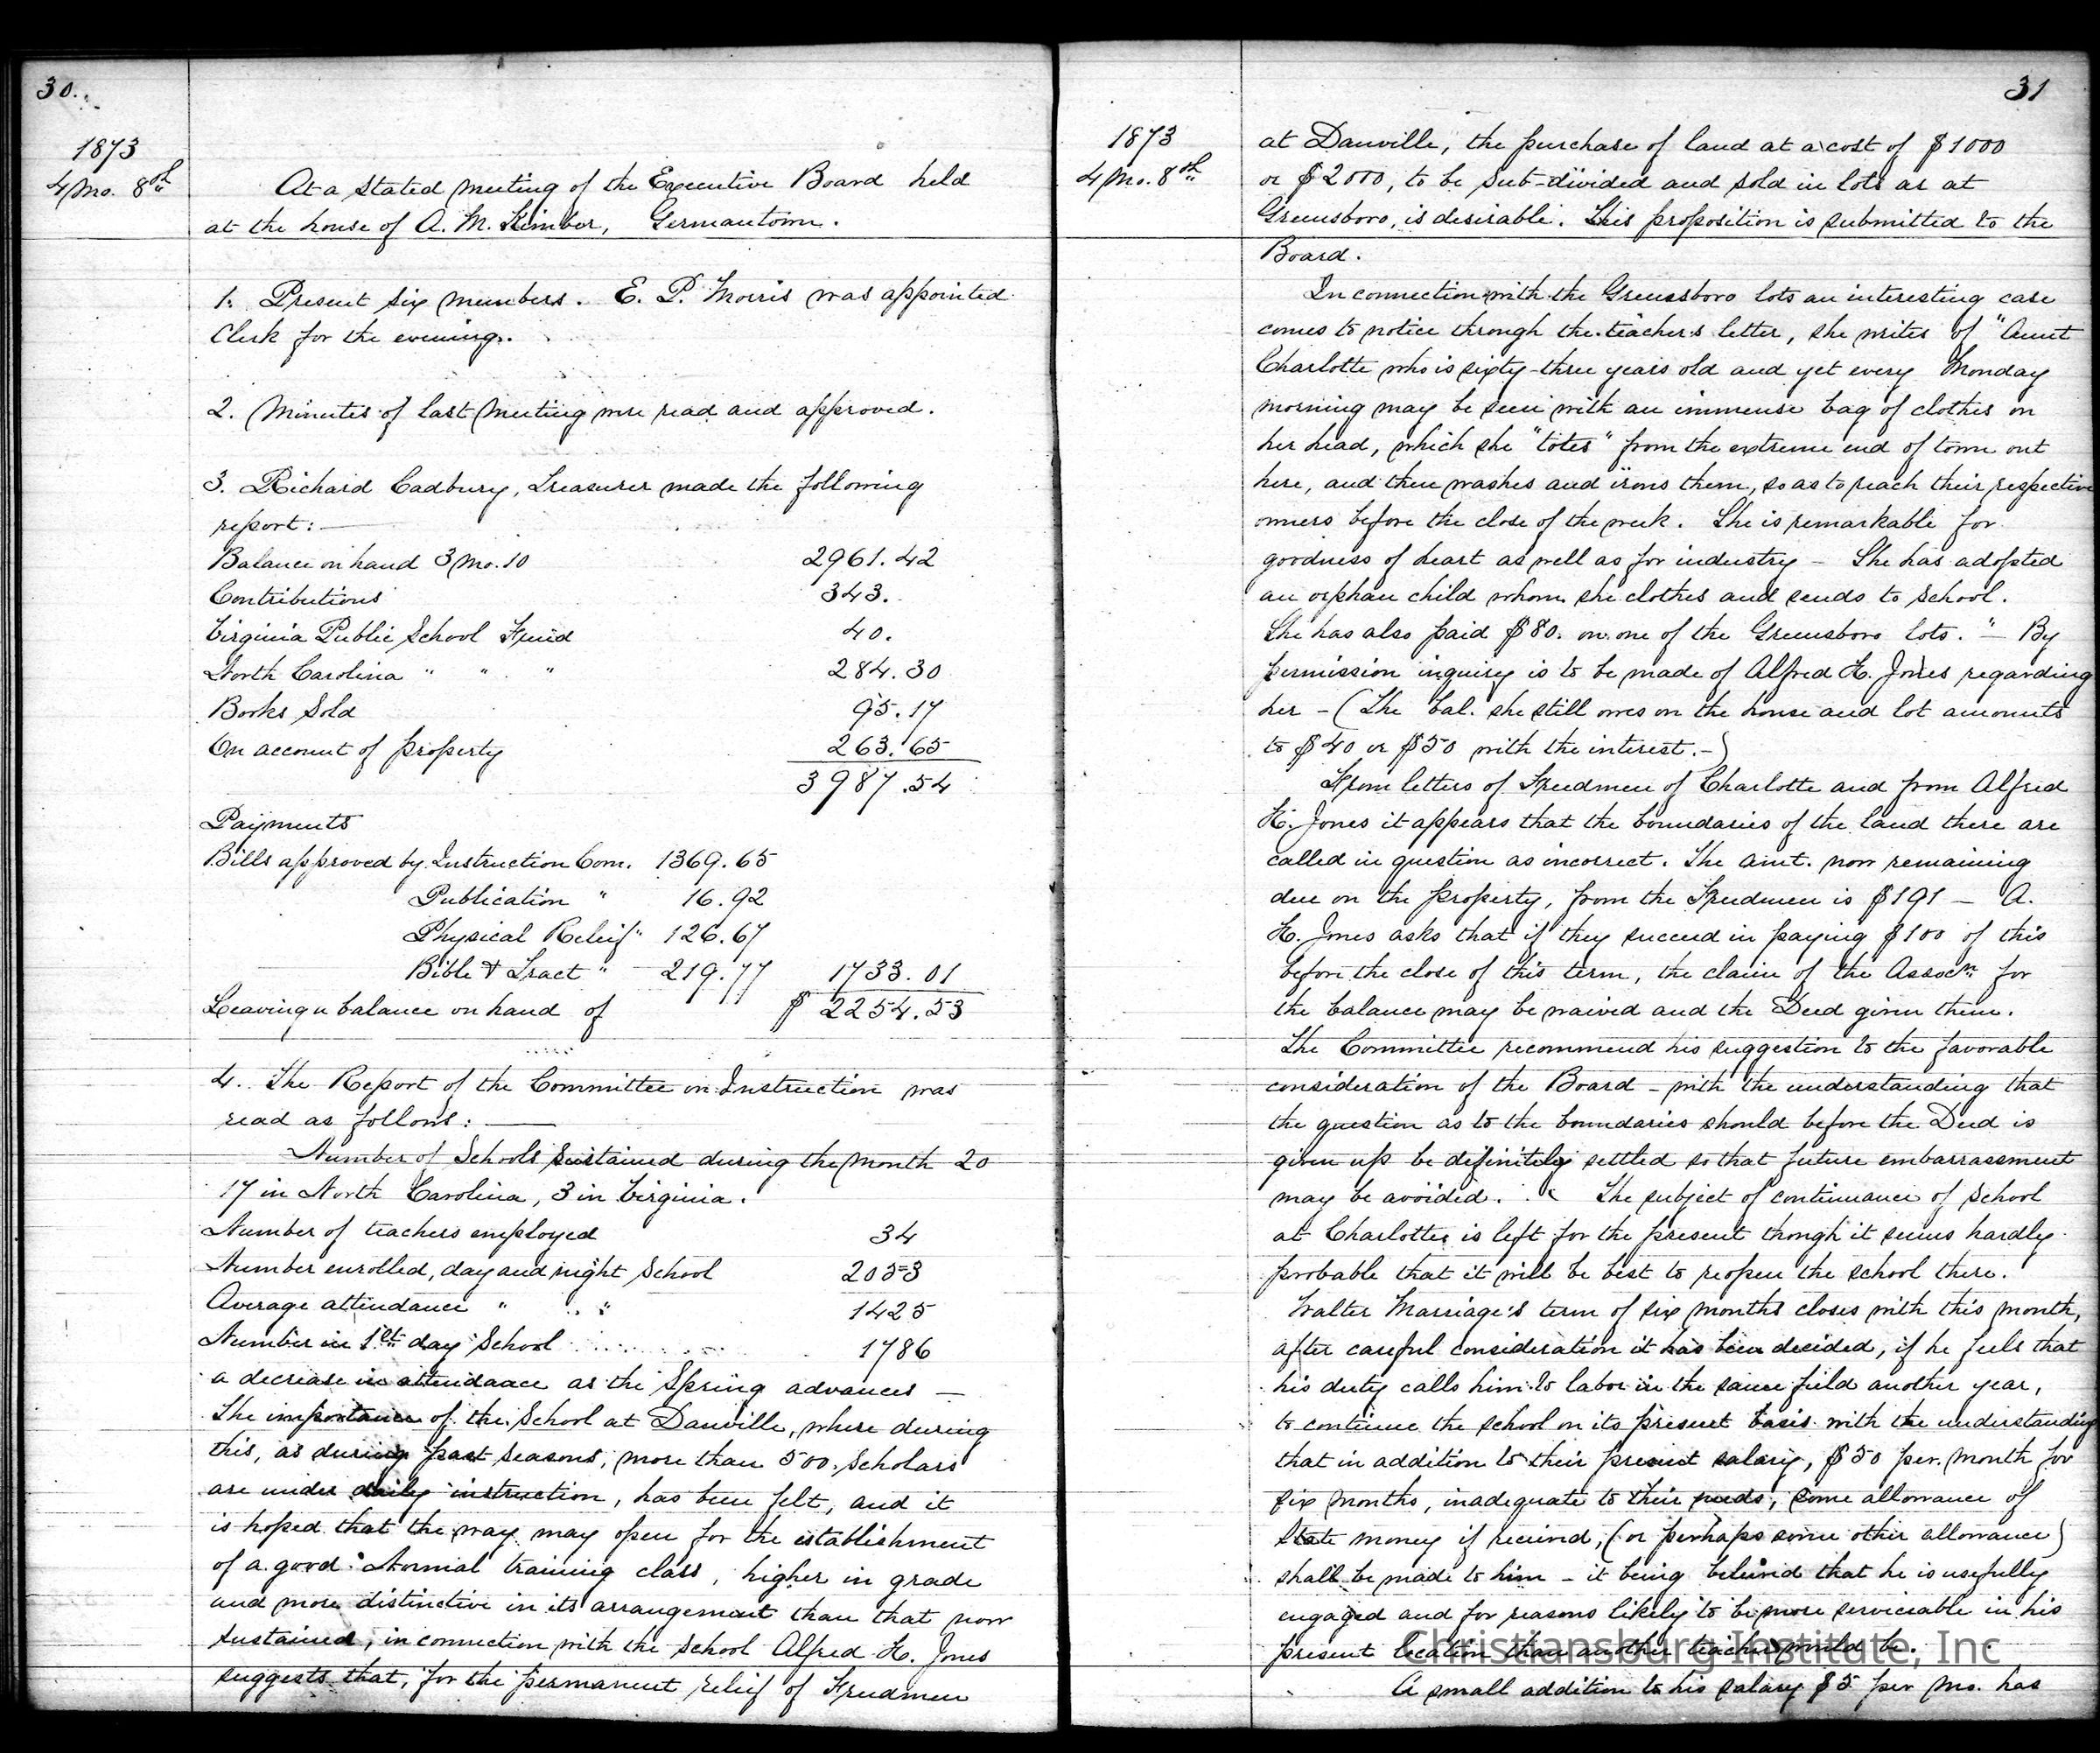 30.
1873
4 Mo. 8th
At a stated Meeting of the Executive Board held
at the house of A. M. Kimber, Germantown.
1. Present six members. E. P. Morris was appointed
Clerk for the evening.
2. Minutes of last Meeting were read and approved.
3. Richard Cadbury, Treasurer made the following
report: —
Balance on hand 3 Mo. 10 2961.42
Contributions 343.
Virginia Public School Fund 40.
North Carolina " " " 284.30
Books Sold 95.17
On account of property 263.65
3987.54
Payments
Bills approved by Instruction Com. 1369.65
Publication " 16.92
Physical Releif " 126.67
Bible & Tract " 219.77 1733.01
Leaving a balance on hand of $ 2254.53
4. The Report of the Committee on Instruction was
read as follows: —
Number of Schools sustained during the Month 20
17 in North Carolina, 3 in Virginia.
Number of teachers employed 34
Number enrolled, day and night School 2053
Average attendance " " " 1425
Number in 1st day School 1786
a decrease in attendance as the Spring advances —
The importance of the School at Danville, where during
this, as during past seasons, more than 500 Scholars
are under daily instruction, has been felt, and it
is hoped that the way may open for the establishment
of a good Normal training class, higher in grade
and more distinctive in its arrangement than that now
sustained, in connection with the School Alfred H. Jones
suggests that, for the permanent relief of Freedmen
31
1873
4 Mo. 8th
at Danville, the purchase of land at a cost of $1000
or $2000, to be sub-divided and sold in lots as at
Greensboro, is desirable. This proposition is submitted to the
Board.
In connection with the Greensboro lots an interesting case
comes to notice through the teacher's letter, she writes of "Aunt
Charlotte who is sixty-three years old and yet every Monday
morning may be seen with an immense bag of clothes on
her head, which she "totes" from the extreme end of town out
here, and then washes and irons them, so as to reach their respective
owners before the close of the week. She is remarkable for
goodness of heart as well as for industry — She has adopted
an orphan child whom she clothes and sends to school.
She has also paid $80. on one of the Greensboro lots." — By
permission inquiry is to be made of Alfred H. Jones regarding
her — (The bal. she still owes on the house and lot amounts
to $40 or $50 with the interest.—)
From letters of Freedmen of Charlotte and from Alfred
H. Jones it appears that the boundaries of the land there are
called in question as incorrect. The amt. now remaining
due on the property, from the Freedmen is $191 — A.
H. Jones asks that if they succeed in paying $100 of this
before the close of this term, the claim of the Assocn for
the balance may be waived and the Deed given them.
The Committee recommend his suggestion to the favorable
consideration of the Board — with the understanding that
the question as to the boundaries should before the Deed is
given up be definitely settled so that future embarrassment
may be avoided. The subject of continuance of School
at Charlotte is left for the present though it seems hardly
probable that it will be best to reopen the school there.
Walter Marriage's term of six months closes with this month,
after careful consideration it has been decided, if he feels that
his duty calls him to labor in the same field another year,
to continue the school on its present basis with the understanding
that in addition to their present salary, $50 per. month for
six months, inadequate to their needs, some allowance of
State money if received, (or perhaps some other allowance)
shall be made to him — it being beleived that he is usefully
engaged and for reasons likely to be more serviceable in his
present location than another teacher would be.
A small addition to his salary $5 per mo. has
Christiansburg Institute, Inc